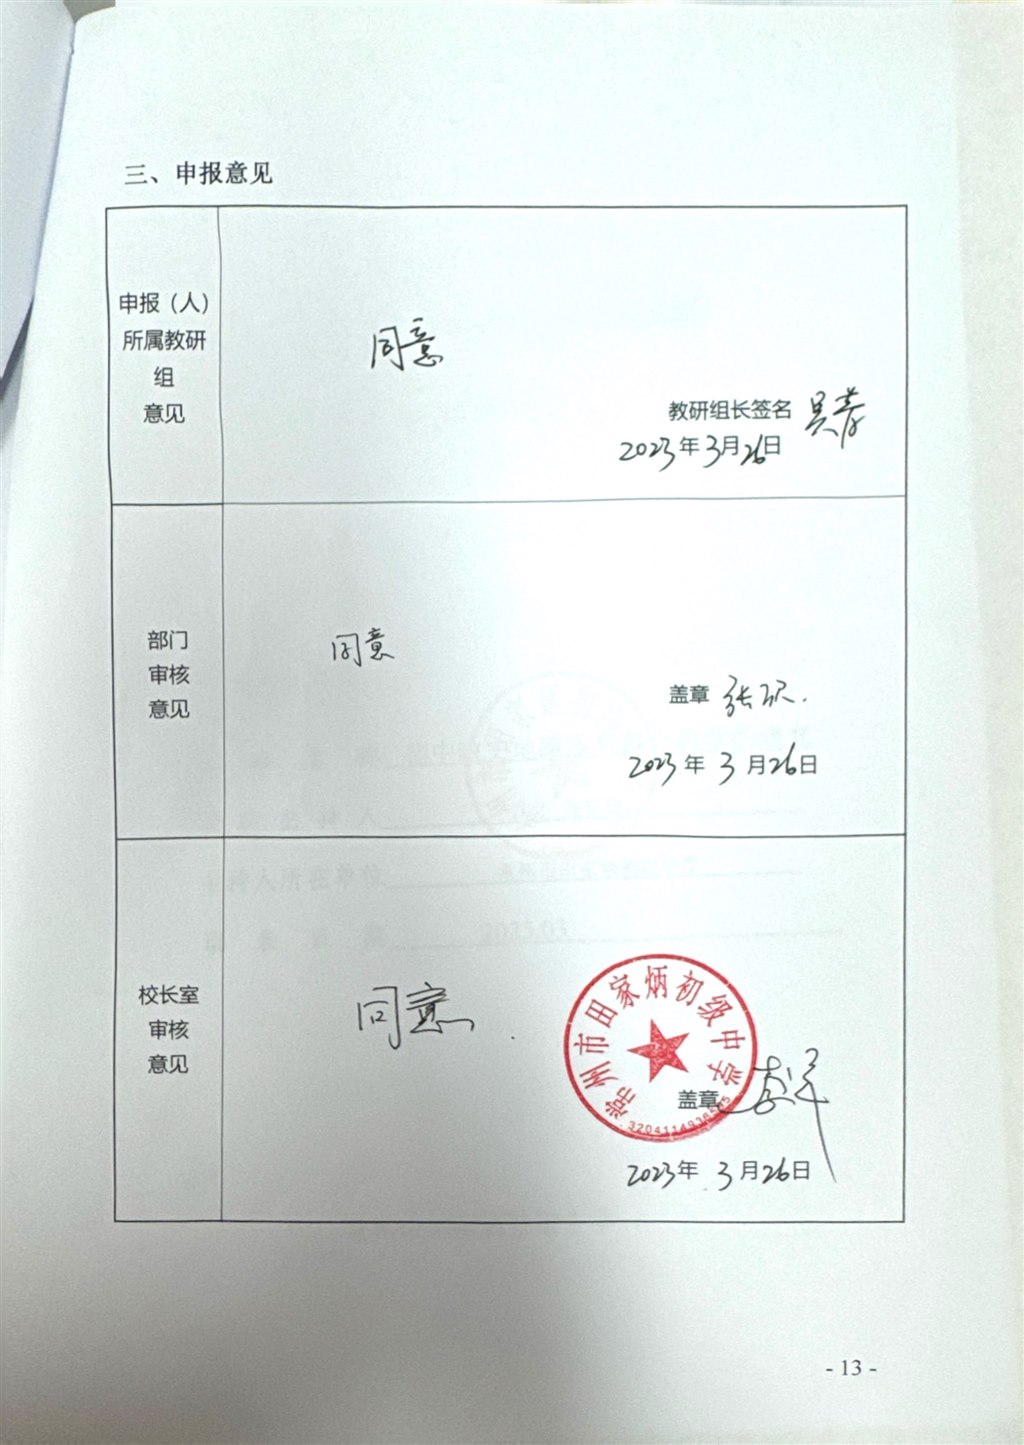 三、申报意见
申报（人）
所属教研
组
意见
同意
教研组长签名
2023年3月26日
部门
审核
意见
同意
盖章 张
2023年3月26日
校长室
审核
意见
同意
常州市田家炳初级中学
盖章
2023年3月26日
- 13 -